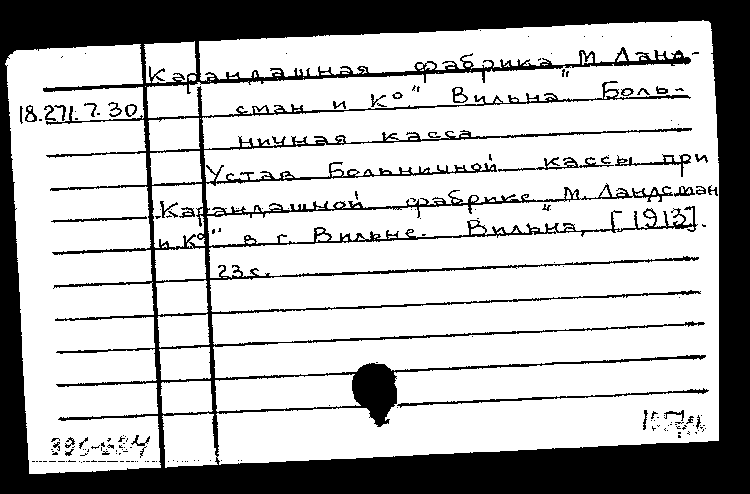 Карандашная фабрика „М. Ланд-
18.271.7.30
сман и К°" Вильна Боль-
ничная касса
Устав Больничной кассы при
Карандашной фабрике „М. Ландсман
и К°" в г. Вильне. Вильна, [1913].
23 с.